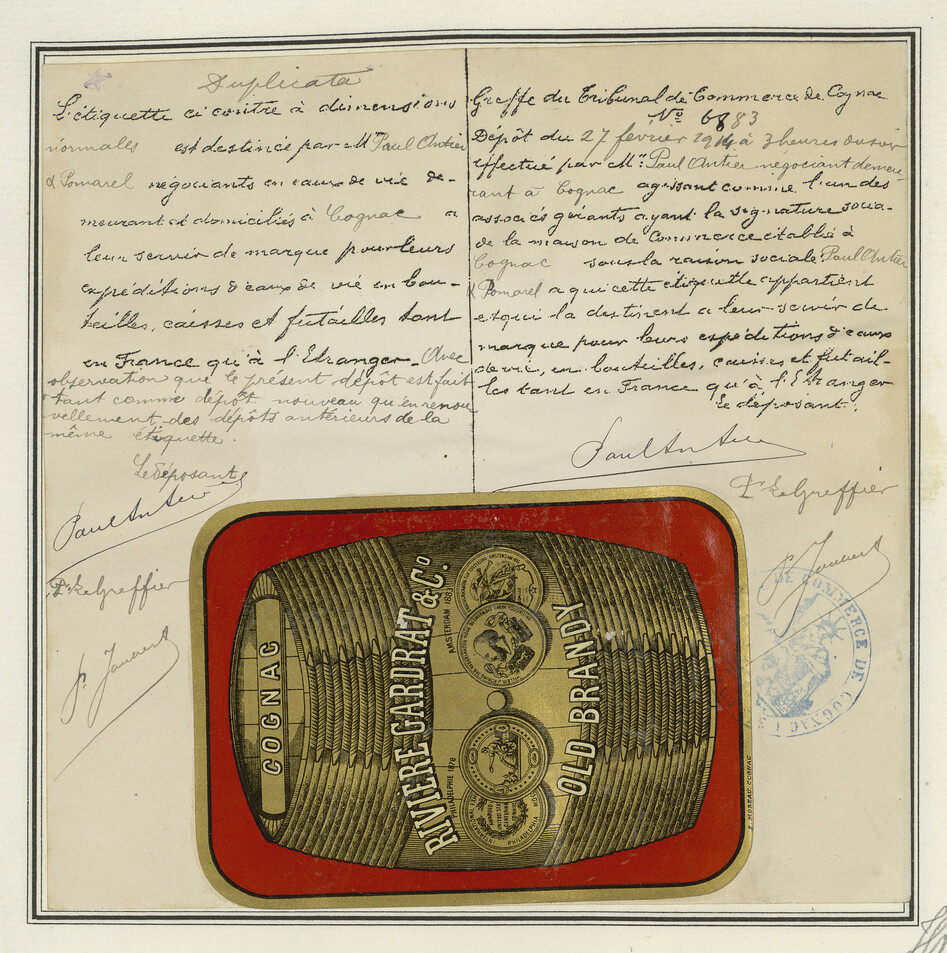 Duplicata
L'étiquette ci contre à dimensions
normales est destinée par MM Paul Antier
& Pomarel négociants en eaux de vie de-
meurant et domiciliés à Cognac a
leur servir de marque pour leurs
expéditions d'eaux de vie en bou-
teilles, caisses et futailles tant
en France qu'à l'Etranger. Avec
observation que le présent dépôt est fait
tant comme dépôt nouveau qu'en renou
vellement des dépôts antérieurs de la
même étiquette.
Le déposant
Paul Antier
Pr. Le Greffier
Greffe du Tribunal de Commerce de Cognac
No 6883
Dépôt du 27 février 1914 à 3 heures du soir
effectué par Mr. Paul Antier négociant demeu-
rant à Cognac agissant comme l'un des
associés gérants ayant la signature socia-
de la maison de Commerce établie à
Cognac sous la raison sociale Paul Antier
& Pomarel a qui cette étiquette appartient
et qui la destinent a leur servir de
marque pour leurs expéditions d'eaux
de vie, en bouteilles, caisses et futail-
les tant en France qu'à l'Etranger
Le déposant.
Paul Antier
Pr. Le Greffier
DE COMMERCE DE COGNAC
COGNAC
RIVIERE GARDRAT & Co.
AMSTERDAM 1883
PHILADELPHIE 1876
OLD BRANDY
AMSTERDAM
INTERNATIONAL
PHILADELPHIA
E. MOREAU. COGNAC